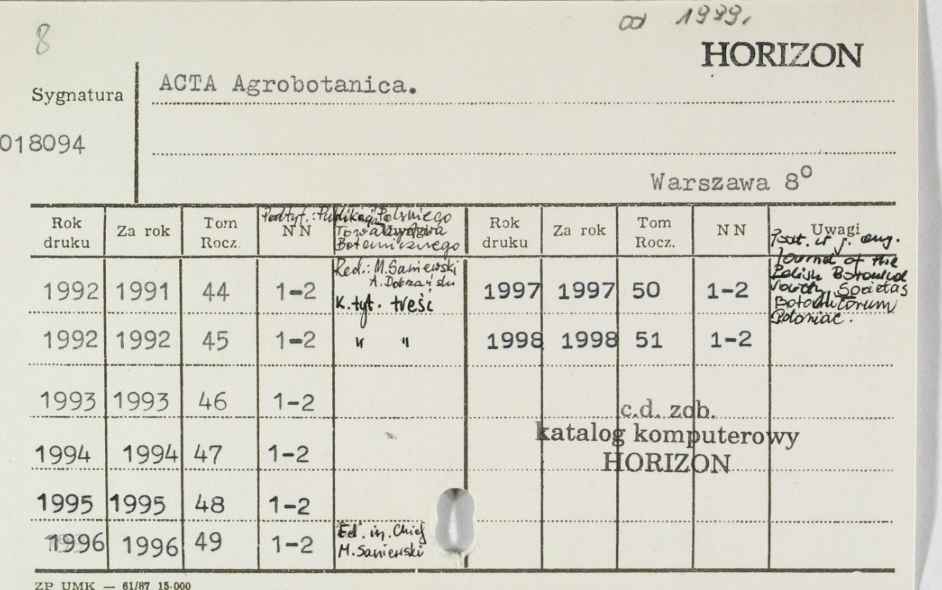 8
od 1999.
HORIZON
Sygnatura
ACTA Agrobotanica.
018094
Warszawa 8°
Rok druku Za rok Tom Rocz. NN Rok druku Za rok Tom Rocz. NN Uwagi
Podtyt.: Polskiego
Botanicznego
Red.: M. Saniewski
A.
K. tyt. treść
1992 1991 44 1-2 1997 1997 50 1-2
j. ang.
Journal of the
Polish Botanical
Societas
Botanicorum
Poloniae.
1992 1992 45 1-2 " " 1998 1998 51 1-2
1993 1993 46 1-2
c.d. zob.
katalog komputerowy
HORIZON
1994 1994 47 1-2
1995 1995 48 1-2
1996 1996 49 1-2
Ed. in. Chief
M. Saniewski
ZP UMK — 61/87 15.000